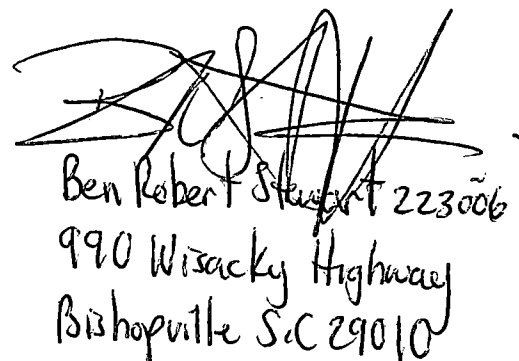 Ben Robert Stewart 223006
990 Wisacky Highway
Bishopville S.C 29010